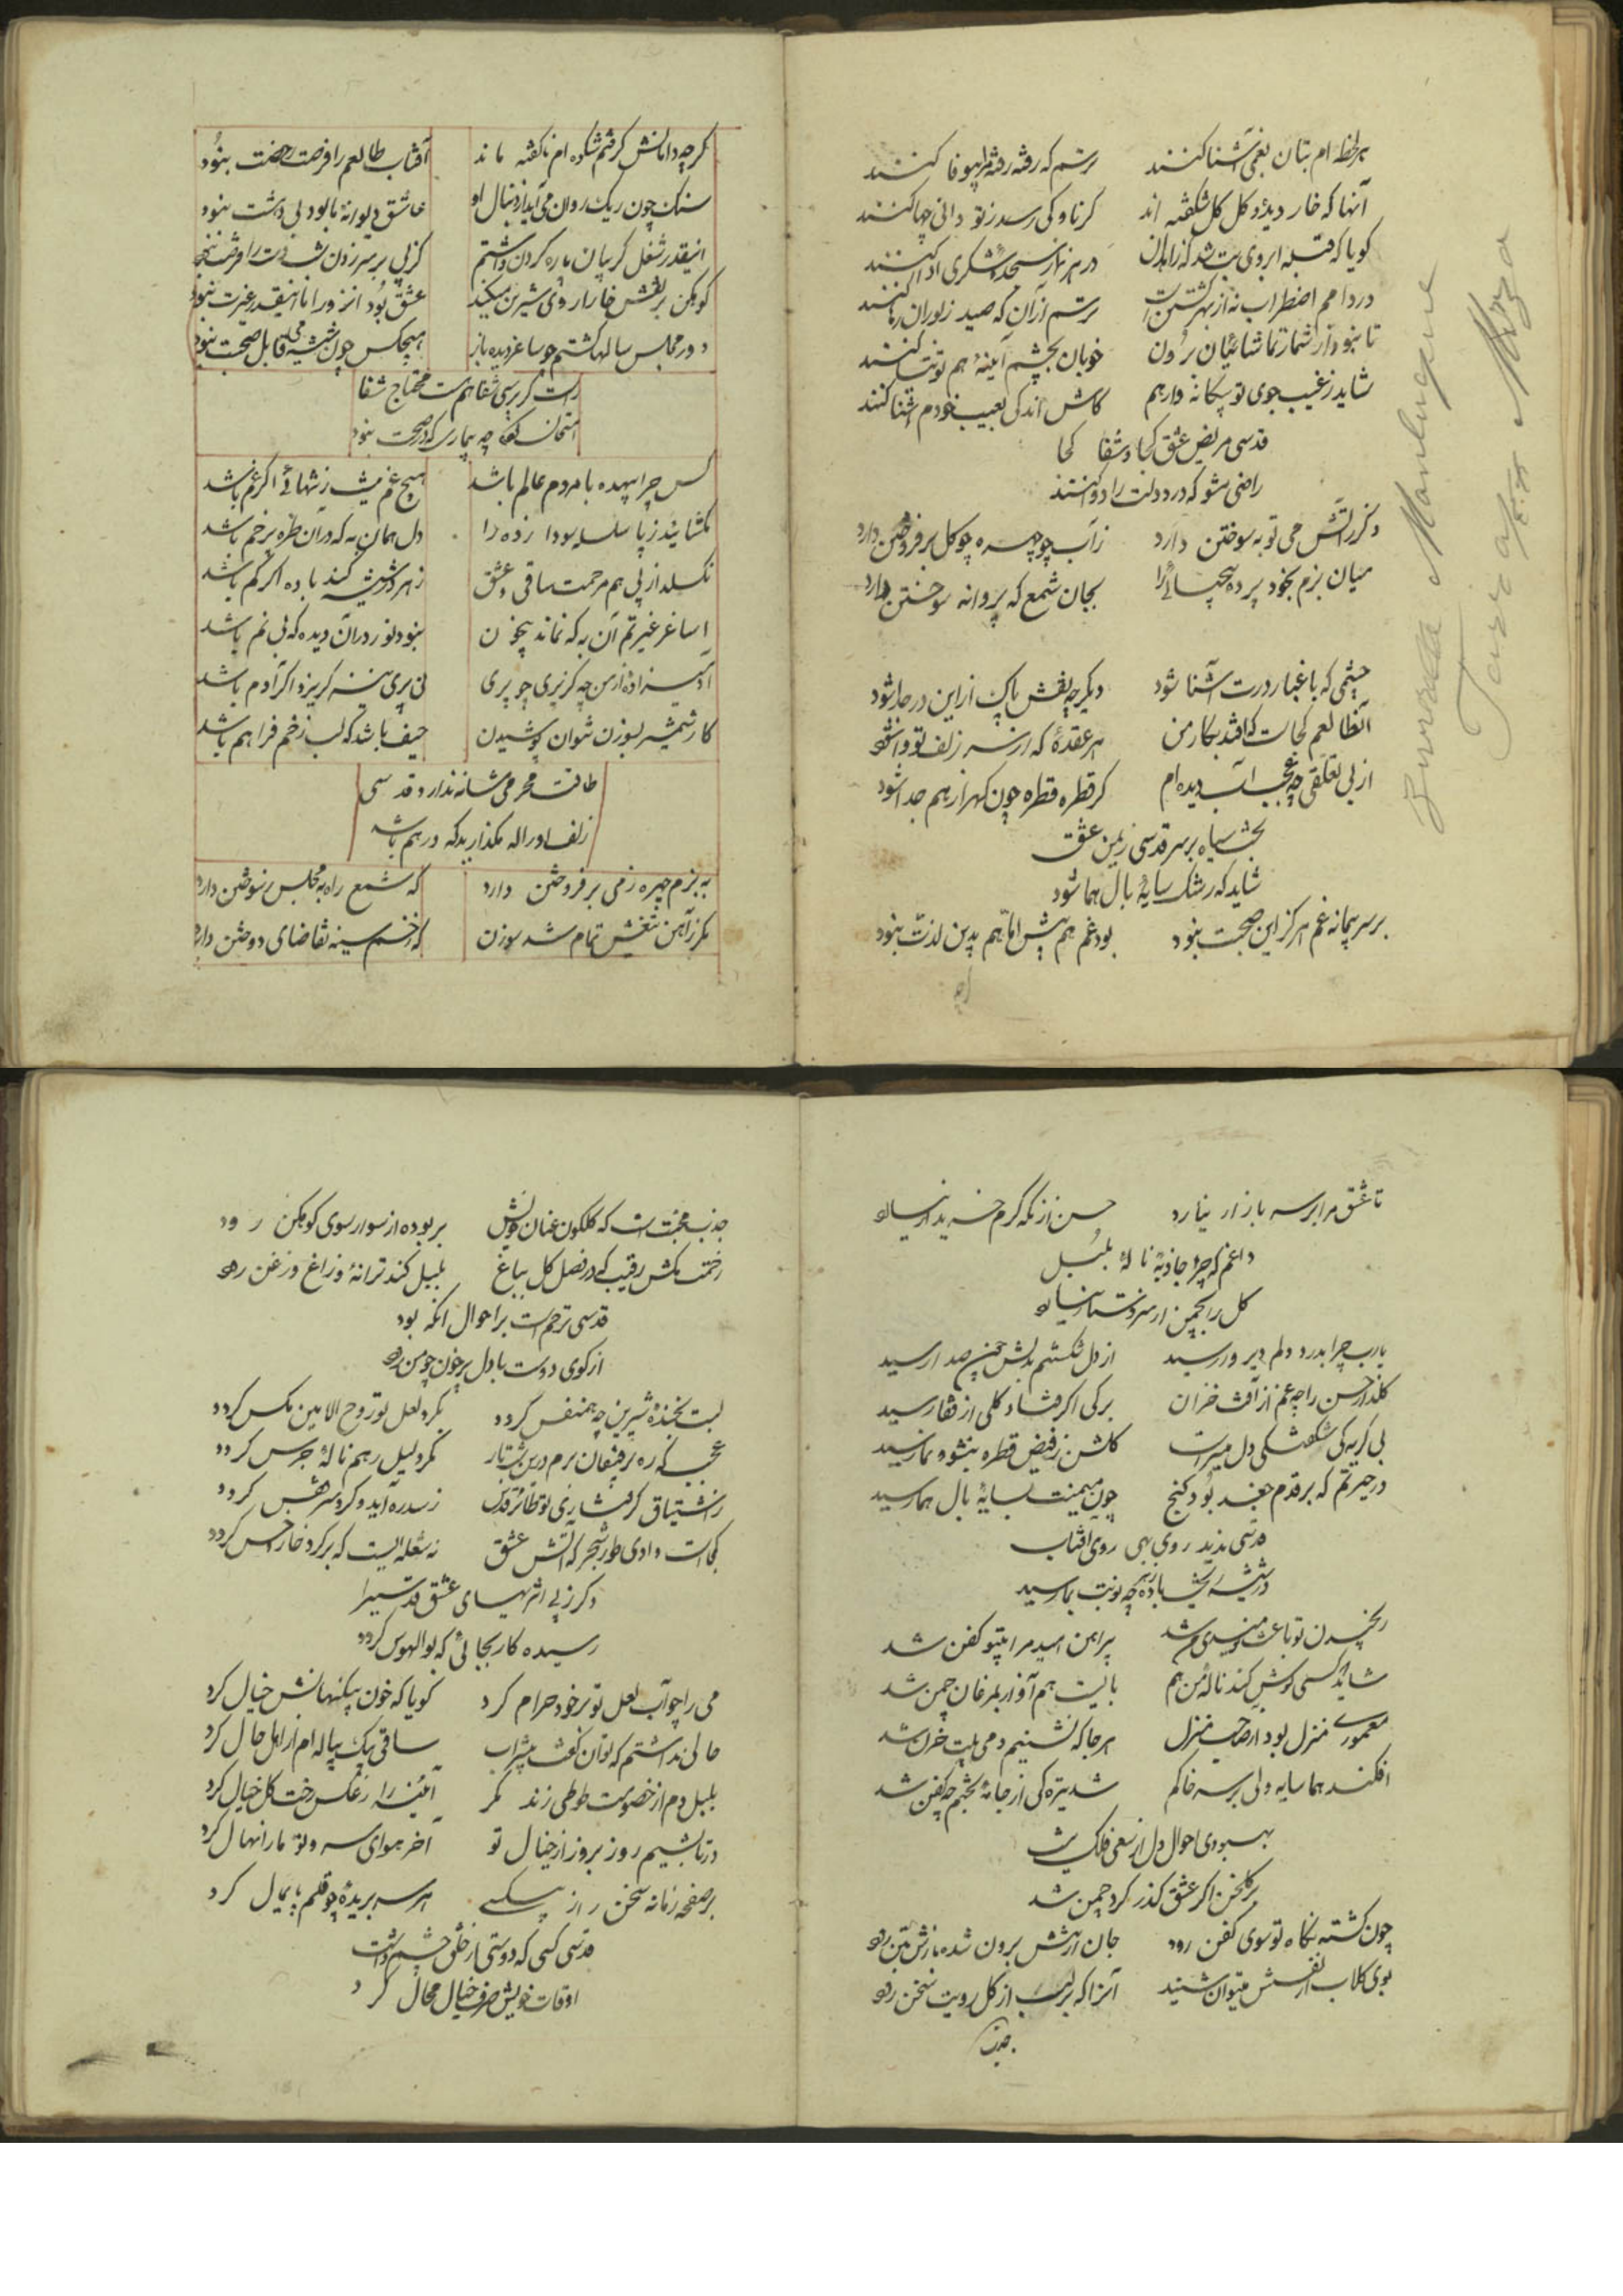 هر لحظه ام بتان بغمی آشنا کنند ترسم که رفته رفته مرا بیوفا کنند
آنها که خار دیده و کل کل شکفته اند کر ناوکی رسد ز تو دانی چها کنند
کویا که قبله ابروی بت شد که زاهدان در هر نماز سجده شکری ادا کنند
دردام اضطراب نه از بهر کشتن است ترسم از آن که صید زبوران رها کنند
تا نبود از شمار تماشائیان برون خوبان بچشم آینه هم توتیا کنند
شاید ز غیب جوی تو بیکانه وارهم کاش اندکی بعیب خودم آشنا کنند
قدسی مریض عشق کجا و شفا کجا
راضی مشو که درد دلت را دوا کنند
دکر آتش می تو به سوختن دارد ز آب چو چهره چو کل برفروختن دارد
میان بزم بخود پرده بجان شمع که پروانه سوختن دارد
چشمی که با غبار درت آشنا شود دیکر چه نقش پاک از این در جدا شود
آن طالعم کجاست که افتد بکار من هر عقدهٔ که از سر زلف تو وا شود
از بی تعلقی چه عجب دیده ام کر قطره قطره چون کهر از هم جدا شود
بخت سیاه بر سر قدسی ز یمن عشق
شاید که رشک سایهٔ بال هما شود
بر سر پیمانه غم هرکز این صحبت نبود بود غم هم پیش اما هم بدین لذت نبود
Zuwalla Manluque
Mirza
کرچه دامانش کرفتم شکوه ام ناکفته ماند آفتاب طالعم را فرصت رجعت نبود
سنک چون ریک روان می آید از دنبال او عاشق دیوانه تا بود بی دشت نبود
اینقدر شغل کریبان پاره کردن داشتم کز پی بر سر زدن دست را فرصت نبود
کوهکن بر نقش خارا روی شیرین میکند عشق بود آنروز اما اینقدر غیرت نبود
دور مجلس سالها کشتم چو ساغر دیده باز هیچکس چون شیشه می قابل صحبت نبود
راست کر پرسی شفا هم هست محتاج شفا
امتحان چه بیماری که در صحت نبود
کس چرا بیهده با مردم عالم باشد هیچ غم نیست ز تنهائی اکر غم باشد
مکشائید ز پا سلسله سودا زده را دل همان به که در آن طره پر خم باشد
نکسلد از پی هم مرحمت ساقی عشق زهر در شیشه کند باده اکر کم باشد
ساغر غیرتم آن به که نماند بیخون نبود نور در آن دیده که بی نم باشد
آدمیزاده از من چه کریزی چو پری نی پری نیز کریزد اکر آدم باشد
کار شمشیر بسوزن نتوان پوشیدن حیف باشد که لب زخم فراهم باشد
طاقت محرمی شانه ندارد قدسی
زلف او را مکذارید که درهم باشد
به بزم چهره ز می برفروختن دارد که شمع راه به مجلس ز سوختن دارد
مکر ز آهن تیغش تمام شد سوزن که زخم سینه تقاضای دوختن دارد
تا عشق مرا بر سر بازار نیارد حسن از نکه کرم خریدار نیارد
داغم که چرا جاذبهٔ نالهٔ بلبل
کل را بچمن از سر دستار نیارد
یارب چرا بدرد دلم دیر وارسید از دل شکستم بدلش چین صد ارسید
کلذار حسن را چه غم از آفت خزان برکی اکر فتاد کلی از قفا رسید
بی کریه کی شکفتکی دل میسر است کلشن ز فیض قطره بنشو و نما رسید
در حیرتم که بر قدم جغد بود کنج چون میمنت بسایهٔ بال هما رسید
قدسی ندید روی بهی روی آفتاب
در شیشه ریخت باده چه نوبت بما رسید
رنجیدن تو باعث نومیدی من شد پیراهن امید مرا بیتو کفن شد
شاید کسی کوش کند نالهٔ من هم بالیست هم آواز بمرغان چمن شد
معموری منزل بود از صاحب منزل هر جا که نشستیم دمی بیت حزن شد
افکند هما سایه ولی بر سر خاکم شد تیره کی از جامهٔ بختم چو کفن شد
بهبودی احوال دل از سعی فلک نیست
بر کلخن اکر عشق کذر کرد چمن شد
چون کشته نکاه تو سوی کفن رود جان از تنش برون شده بازش بتن رود
بوی کلاب از نفسش میتوان شنید آنرا که بر لب از کل رویت سخن رود
جذب
جذب محبت است که کلکون عنان خویش بربوده از سوار سوی کوهکن رود
زحمت مکش رقیب که در فصل کل بباغ بلبل کند ترانه و زاغ و زغن رود
قدسی ترحم است بر احوال آنکه بود
از کوی دوست با دل پر خون چو من رود
لبت بخندهٔ شیرین چو همنفس کردد بکرد لعل تو روح الامین مکس کردد
عجب که ره برفیقان برم درین شب تار مکر دلیل رهم نالهٔ جرس کردد
ز اشتیاق کرفتاری تو طائر قدس ز سدره آید و کرد سر قفس کردد
کجاست وادی طور شجر که آتش عشق نه شعله ایست که بر کرد خار و خس کردد
دکر ز بی اثریهای عشق قدسی را
رسیده کار بجائی که بوالهوس کردد
می را چو آب لعل تو بر خود حرام کرد کویا که خون بیکنهانش خیال کرد
حالی نداشتم که توان کفت بیشراب ساقی بیک پیاله ام از اهل حال کرد
بلبل دم از خصومت طوطی زند مکر آئینه را ز عکس رخت کل خیال کرد
در تابشیم روز بروز از خیال تو آخر هوای سرو تو ما را نهال کرد
بر صفحه زمانه سخن راز بیکسی هر سر بریدهٔ چو قلم پایمال کرد
قدسی کسی که دوستی از خلق چشم داشت
اوقات خویش صرف خیال محال کرد